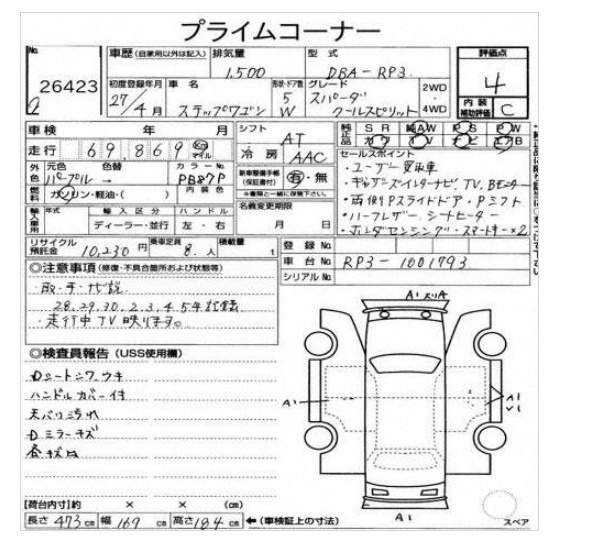 プライムコーナー
No. 26423
車歴 (自家用以外は記入)
排気量 1,500
型式 DBA-RP3
評価点 4
初度登録年月 27年4月
車名 ステップワゴン
形状・ドア数 5 W
グレード スパーダ クールスピリット
2WD
4WD
内装補助評価 C
車検 年 月
シフト AT
純正品 SR AW PS PW
カワ TV ナビ エアB
走行 69,869 Km マイル
冷房 AAC
セールスポイント
外色 元色 パープル → 色替
カラーNo. PB87P
新車整備手帳(保証書付) 有・無
※書類と一緒に保管下さい。
・ユーザー買取車
・ギャザズインターナビ、TV、Bモニター
燃料 ガソリン・軽油・( )
内装色
・両側Pスライドドア・Pシフト
輸入車用 年式 輸入区分 ハンドル
ディーラー・並行 左・右
名義変更期限 月 日
・ハーフレザー シートヒーター
・ホンダセンシング・スマートキー×2
リサイクル預託金 10,230円
乗車定員 8人
積載量 t
登録No.
車台No. RP3-1001793
シリアルNo.
◎注意事項 (修復・不具合箇所および状態等)
・取・手・ナビ説
28.29.30.2.3.4.5.4記録
・走行中TV映ります。
A1 スリA
◎検査員報告 (USS使用欄)
Dシートシワ、ウキ
ハンドルカバー付
天バリ汚れ
Dミラーキズ
各キズ凹
A1
A1
V1
A1
スペア
【荷台内寸】約 × × (cm)
長さ 473 cm 幅 169 cm 高さ 184 cm ←(車検証上の寸法)